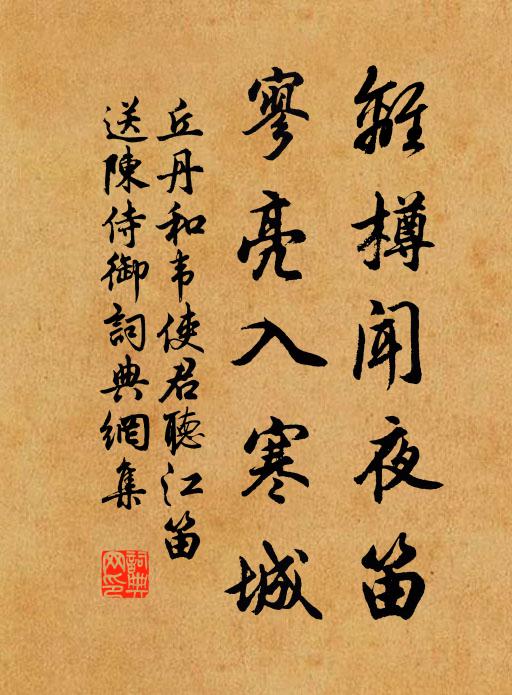 離樽闻夜笛
寥亮入寒城
丘丹和韦使君聽江笛
送陳侍御詞典網集
詞典网印